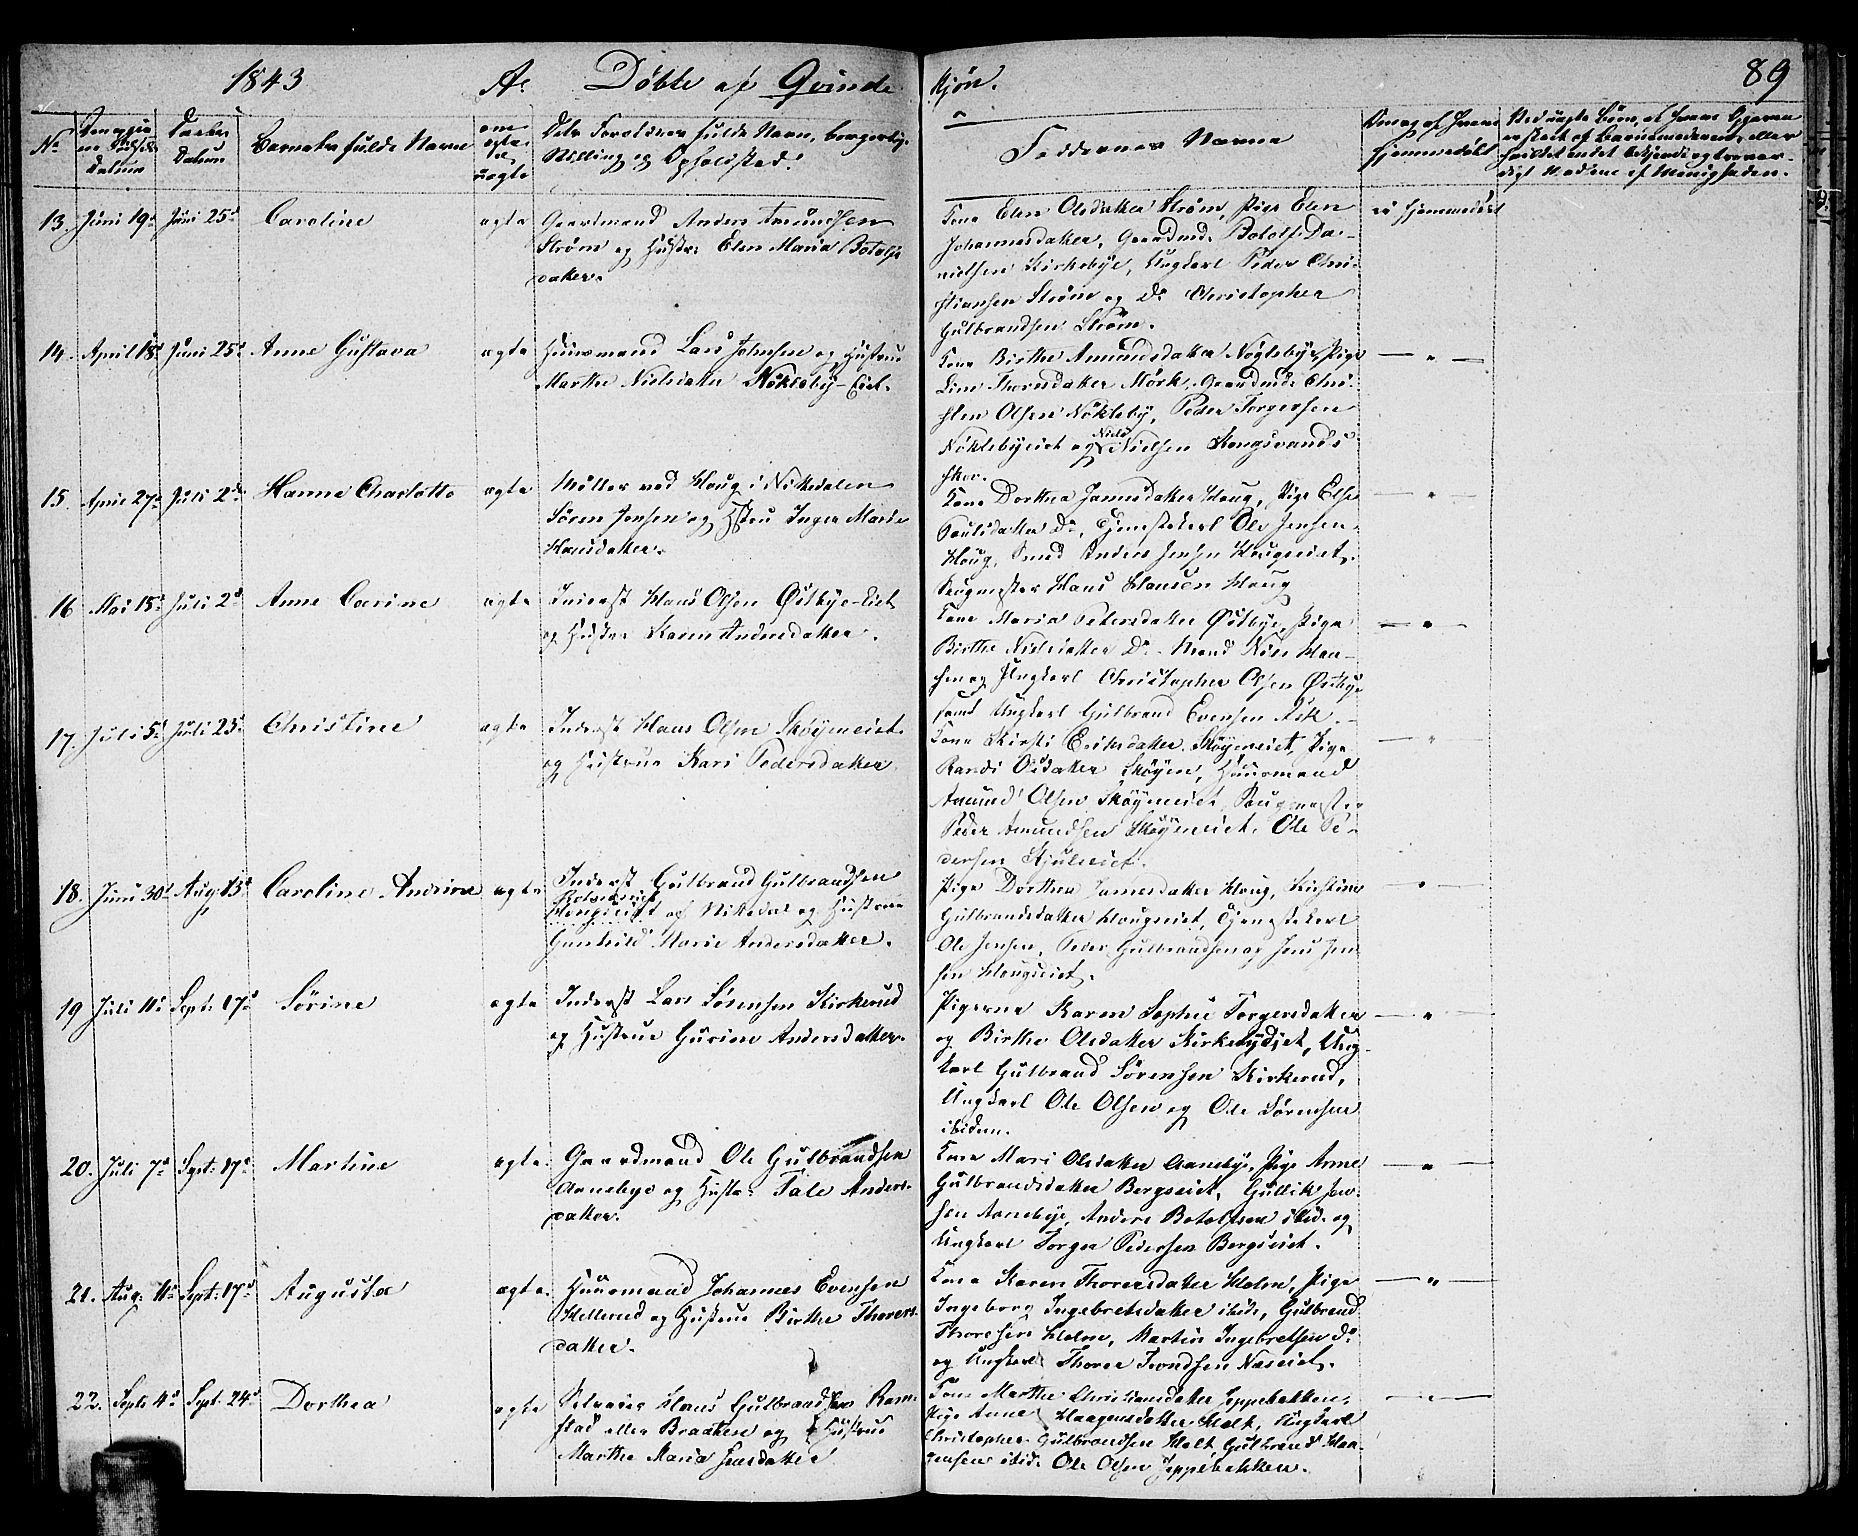 1843 A. Döbte af Qvinde kjön. 89
No
Datum
Daabs Datum
Barnets fulde Navn
om ægte eller uægte
Forældrenes fulde Navn, borgerlig Stilling og Opholdssted.
Faddernes Navne
hjemmedöbt
13. Juni 19d Juni 25d Caroline ægte
Gaardmand Anders Amundsen
Ström og Hustr: Elen Maria Botolfs
datter.
Kone Elen Olsdatter Ström, Pige Elen
Johannesdatter, Gaardmd. Botolf Da-
nielsen Kirkebye, Ungkarl Peder Chri-
stiansen Ström og Do Christopher
Gulbrandsen Ström.
ei hjemmedöbt
14. April 18d Juni 25d Anne Gustava ægte
Huusmand Lars Johnsen og Hustrue
Marthe Nielsdatter Nökleby-Eiet.
Kone Birthe Amundsdatter Nöglebye, Pige
Line Thorsdatter Mörk, Gaardmd. Chri-
sten Olsen Nökleby, Peder Torgersen
Nöklebyeiet og Niels Nielsen Kongsvands
skov.
— " —
15. April 27d Juli 2d Hanne Charlotte ægte
Möller ved Houg i Nitedalen
Sören Jensen og Hstru Inger Marie
Hansdatter.
Kone Dorthea Jansdatter Houg, Pige Else
Poulsdatter Do, Tjenestekarl Ole Jensen
Houg, Smed Anders Jensen Hougseiet,
Saugmester Hans Hansen Houg
— " —
16 Mai 15d Juli 2d Anne Carine ægte
Inderst Hans Olsen Östbye-Eiet
og Hustru Karen Andersdatter.
Kone Maria Pedersdatter Östbye, Pige
Birthe Nielsdatter Do. Mand Niels Han-
sen og Ungkarl Christopher Olsen Östbye
samt Ungkarl Gulbrand Evensen Ask.
— " —
17. Juli 5d Juli 23d Christine ægte
Inderst Hans Olsen Sköyeneiet
og Hustrue Kari Pedersdatter
Kone Kirsti Eriksdatter Sköyeneiet, Pige
Randi Olsdatter Sköyen, Huusmand
Amund Olsen Sköyeneiet, Saugmester
Peder Amundsen Sköyeneiet, Ole Pe-
dersen
— " —
18. Juni 30d Aug: 13d Caroline Andrine ægte
Inderst Gulbrand Gulbrandsen
Hougseiet af Nitedal og Hustrue
Gunhild Marie Andersdatter.
Pige Dorthea Jansdatter Houg, Kirstine
Gulbrandsdatter Hougseiet, Tjenestekarl
Ole Jensen, Peder Gulbrandsen og Jens Jen
sen Hougseiet.
— " —
19 Juli 11d Sept: 17d Sörine ægte
Inderst Lars Sörensen Kirkerud
og Hustrue Gurine Andersdatter.
Pigerne Karen Sophie Torgersdatter
og Birthe Olsdatter Kirkebyeiet, Ung-
karl Gulbrand Sörensen Kirkerud,
Ungkarl Ole Olsen og Ole Sörensen
ibidem.
— " —
20. Juli 7d Sept: 17d Martine ægte.
Gaardmand Ole Gulbrandsen
Aanebye og Hustr: Tale Anders-
datter.
Kone Mari Olsdatter Aanebye, Pige Anne
Gulbrandsdatter Bergseiet, Gullik Jen-
sen Aanebye, Anders Botolfsen ibid. og
Ungkarl Torger Pedersen Bergseiet.
— " —
21. Aug: 11d Sept: 17d Augusta ægte.
Huusmand Johannes Evensen
Skellerud og Hustrue Birthe Thorers-
datter.
Kone Karen Thorersdatter Holm, Pige
Ingeborg Ingebretsdatter ibid., Gulbrand
Thoresen Holm, Martin Ingebretsen Do
og Ungkarl Thorer Trondsen Næseiet.
— " —
22. Sept: 4d Sept. 24d Dorthea ægte
Hans Gulbrandsen Ram-
stad eller Braaten og Hustrue
Marthe Maria
Kone Marthe Christiansdatter Jeppebakken,
Pige Anne Haagensdatter Holt, Ungkarl
Christopher Gulbrandsen Holt, Gulbrand Haa-
gensen ibid. Ole Olsen Jeppebakken.
— " —